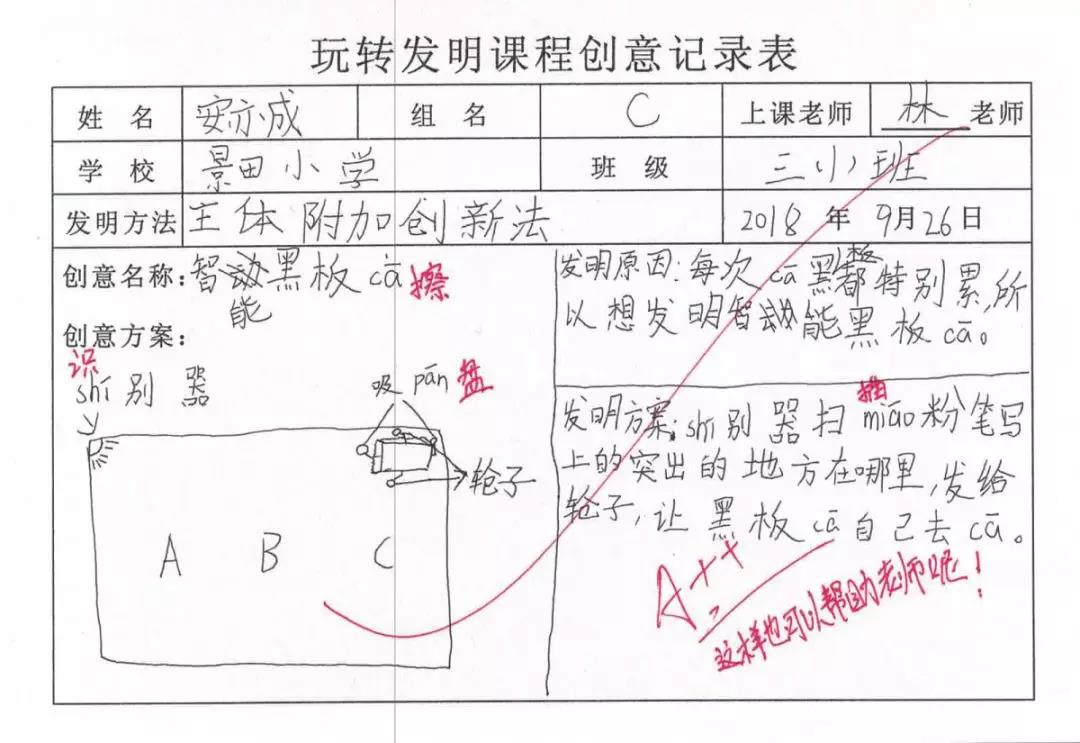 玩转发明课程创意记录表
姓 名 安亦成 组 名 C 上课老师 林 老师
学 校 景田小学 班 级 三(小)班
发明方法 主体附加创新法 2018 年 9月26日
创意名称:智能黑板cā 擦
创意方案:
识
shī别器
吸pān 盘
轮子
A B C
发明原因:每次cā黑板都特别累,所
以想发明智能黑板cā。
描
发明方案:shī别器扫miāo粉笔写
上的突出的地方在哪里,发给
轮子,让黑板cā自己去cā。
A++
这样也可以帮助老师呢!